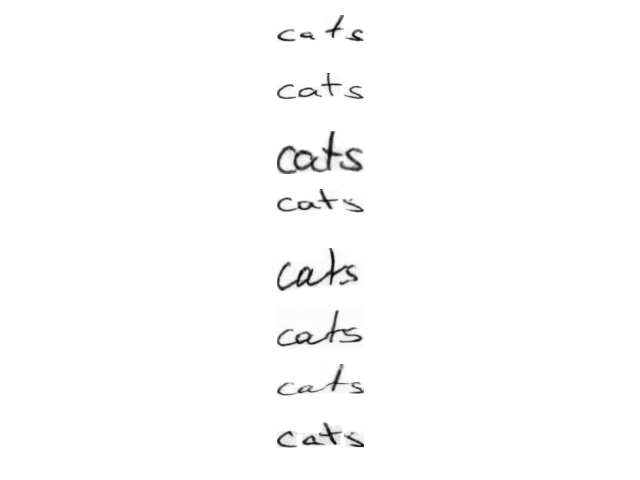 cats
cats
cats
cats
cats
cats
cats
cats